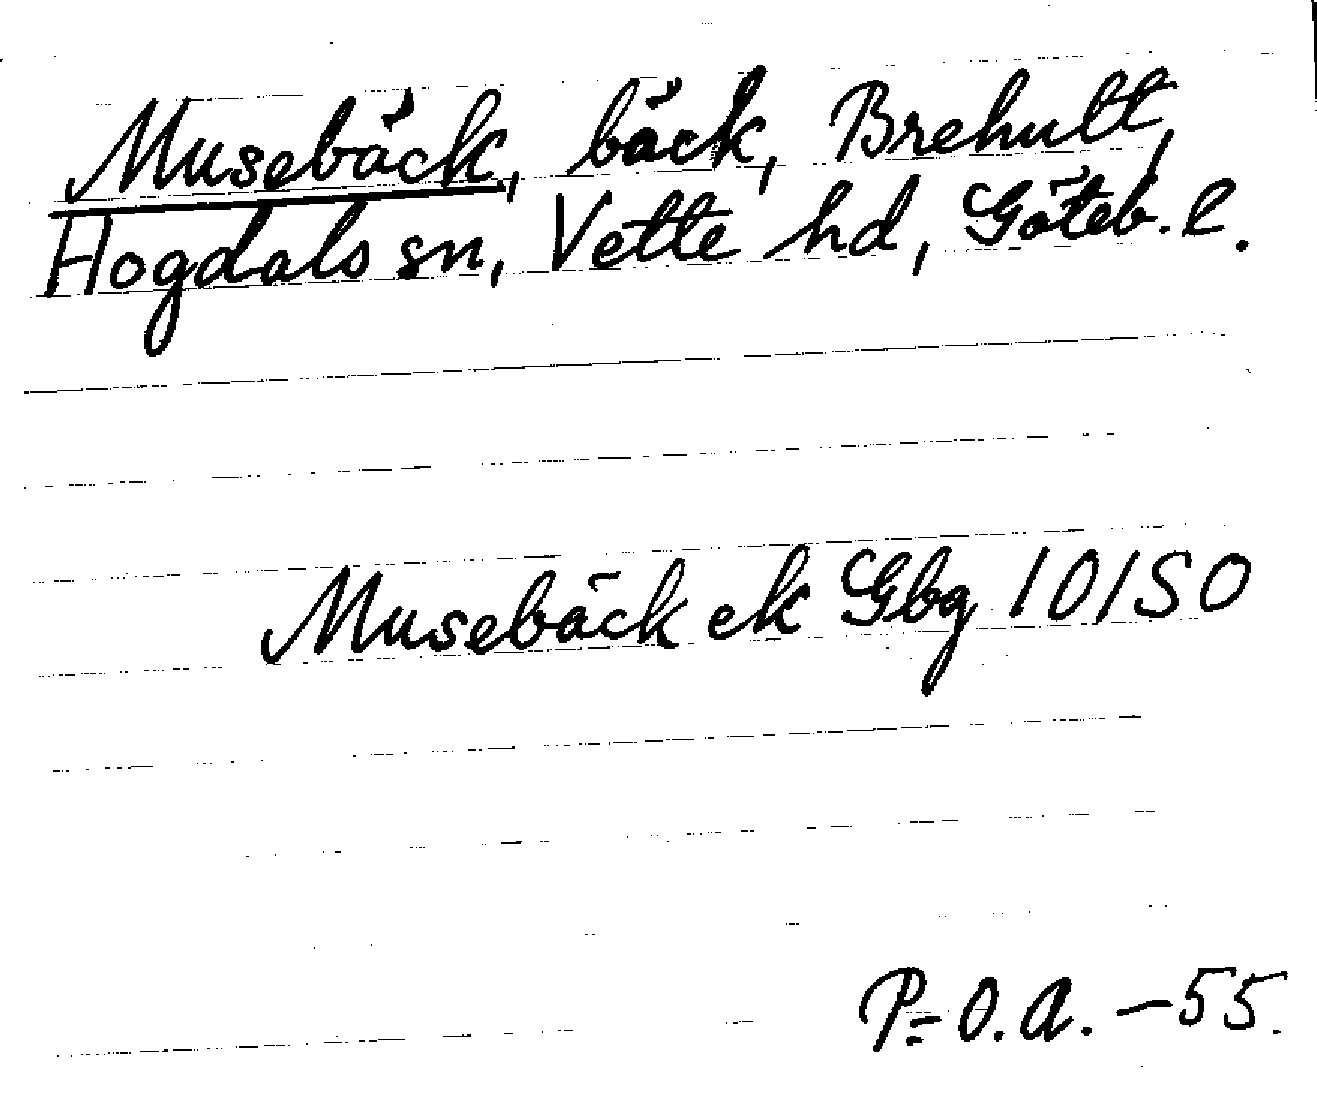 Musebäck, bäck, Brehult,
Hogdals sn, Vette hd, Göteb. l.
Musebäck ek Gbg 10/SO
P=O.A. - 55.